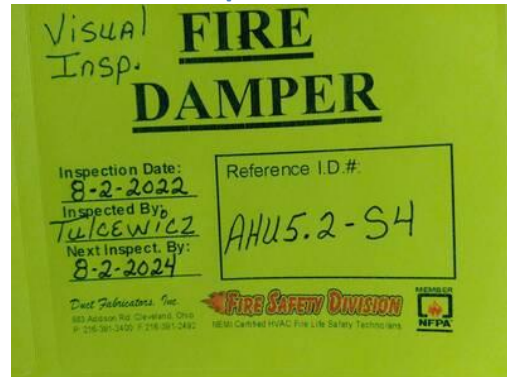 Visual
Insp.
FIRE
DAMPER
Inspection Date:
8-2-2022
Inspected By:
TULCEWICZ
Next Inspect. By:
8-2-2024
Reference I.D.#:
AHU5.2-S4
Duct Fabricators, Inc.
883 Addison Rd. Cleveland, Ohio
P. 216-391-2400 F. 216-391-2492
FIRE SAFETY DIVISION
NEMI Certified HVAC Fire Life Safety Technicians
MEMBER
NFPA